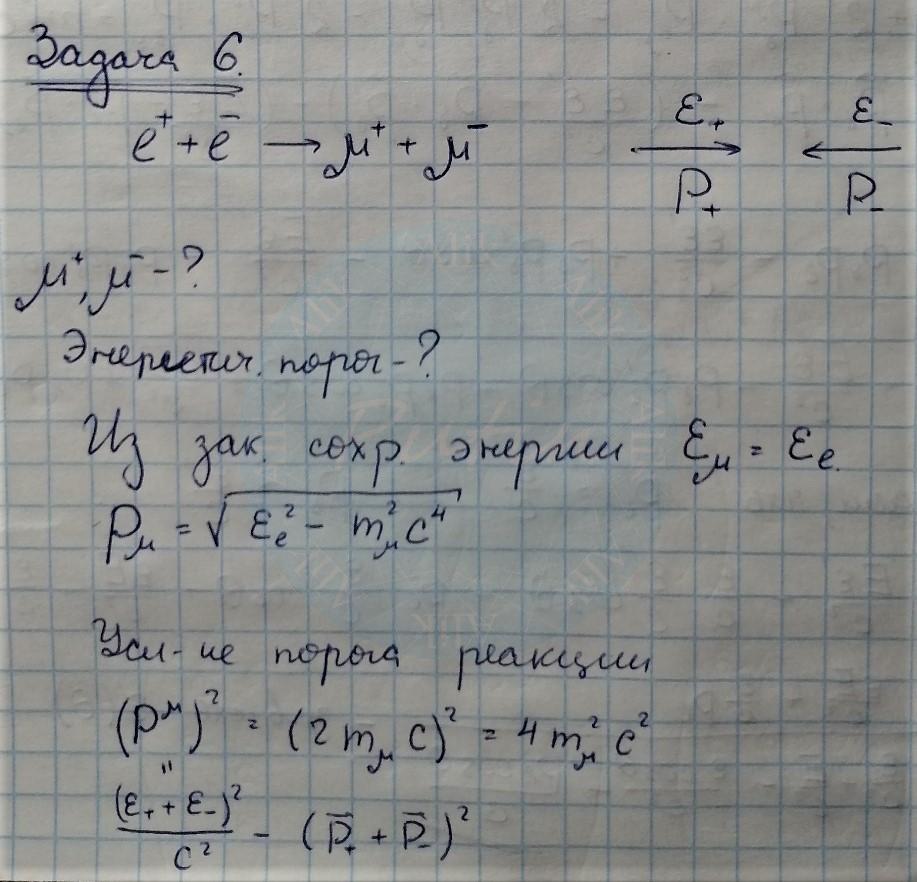 Задача 6.
e⁺ + e⁻ → μ⁺ + μ⁻
ε₊ ε₋
P₊ P₋
μ⁺, μ⁻ - ?
Энергетич. порог - ?
Из зак. сохр. энергии ε_μ = ε_e.
P_μ = √(ε_e² - m_μ²c⁴)
Усл-ие порога реакции
(P^μ)² = (2 m_μ c)² = 4 m_μ² c²
"
(ε₊ + ε₋)² / c² - (P̄₊ + P̄₋)²